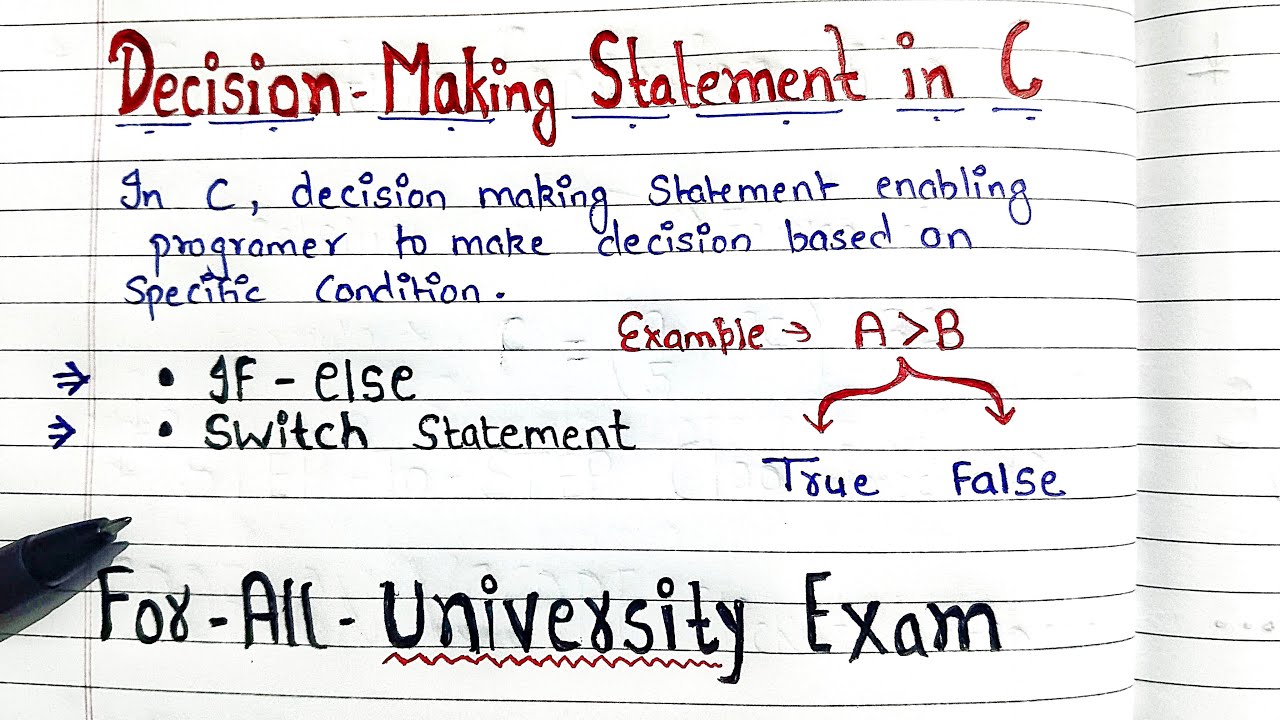 Decision-Making Statement in C
In C, decision making Statement enabling
programer to make decision based on
Specific Condition.
Example → A>B
⇒ • IF - else
⇒ • Switch Statement
True False
For - All - University Exam